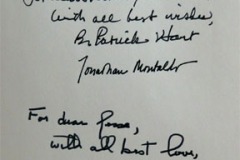 with all best wishes,
Br Patrick Hart
Jonathan Montaldo
For dear
with all best love,